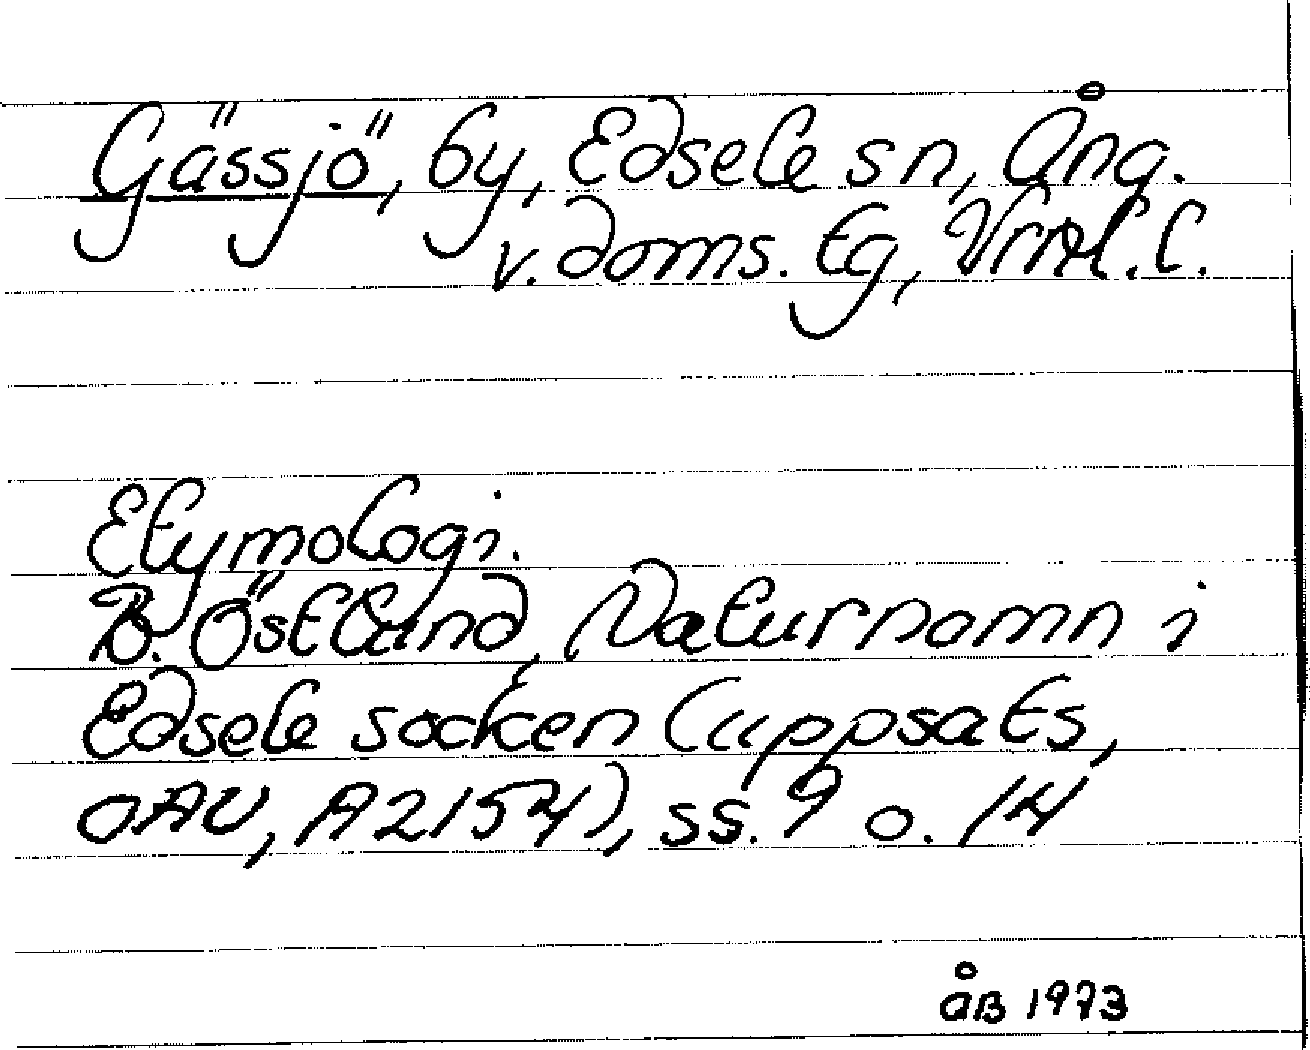 Gässjö, by, Edsele sn, Ång.
v. doms. tg, Vrnl. l.
Etymologi.
B. Östlund, Naturnamn i
Edsele socken (uppsats,
OAU, A2154), ss. 9 o. 14
ÅB 1973